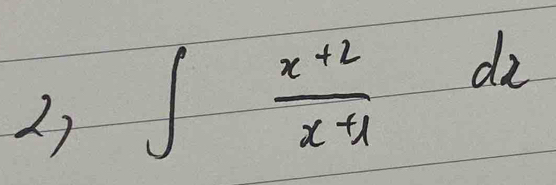 2, ∫ (x+2)/(x+1) dx